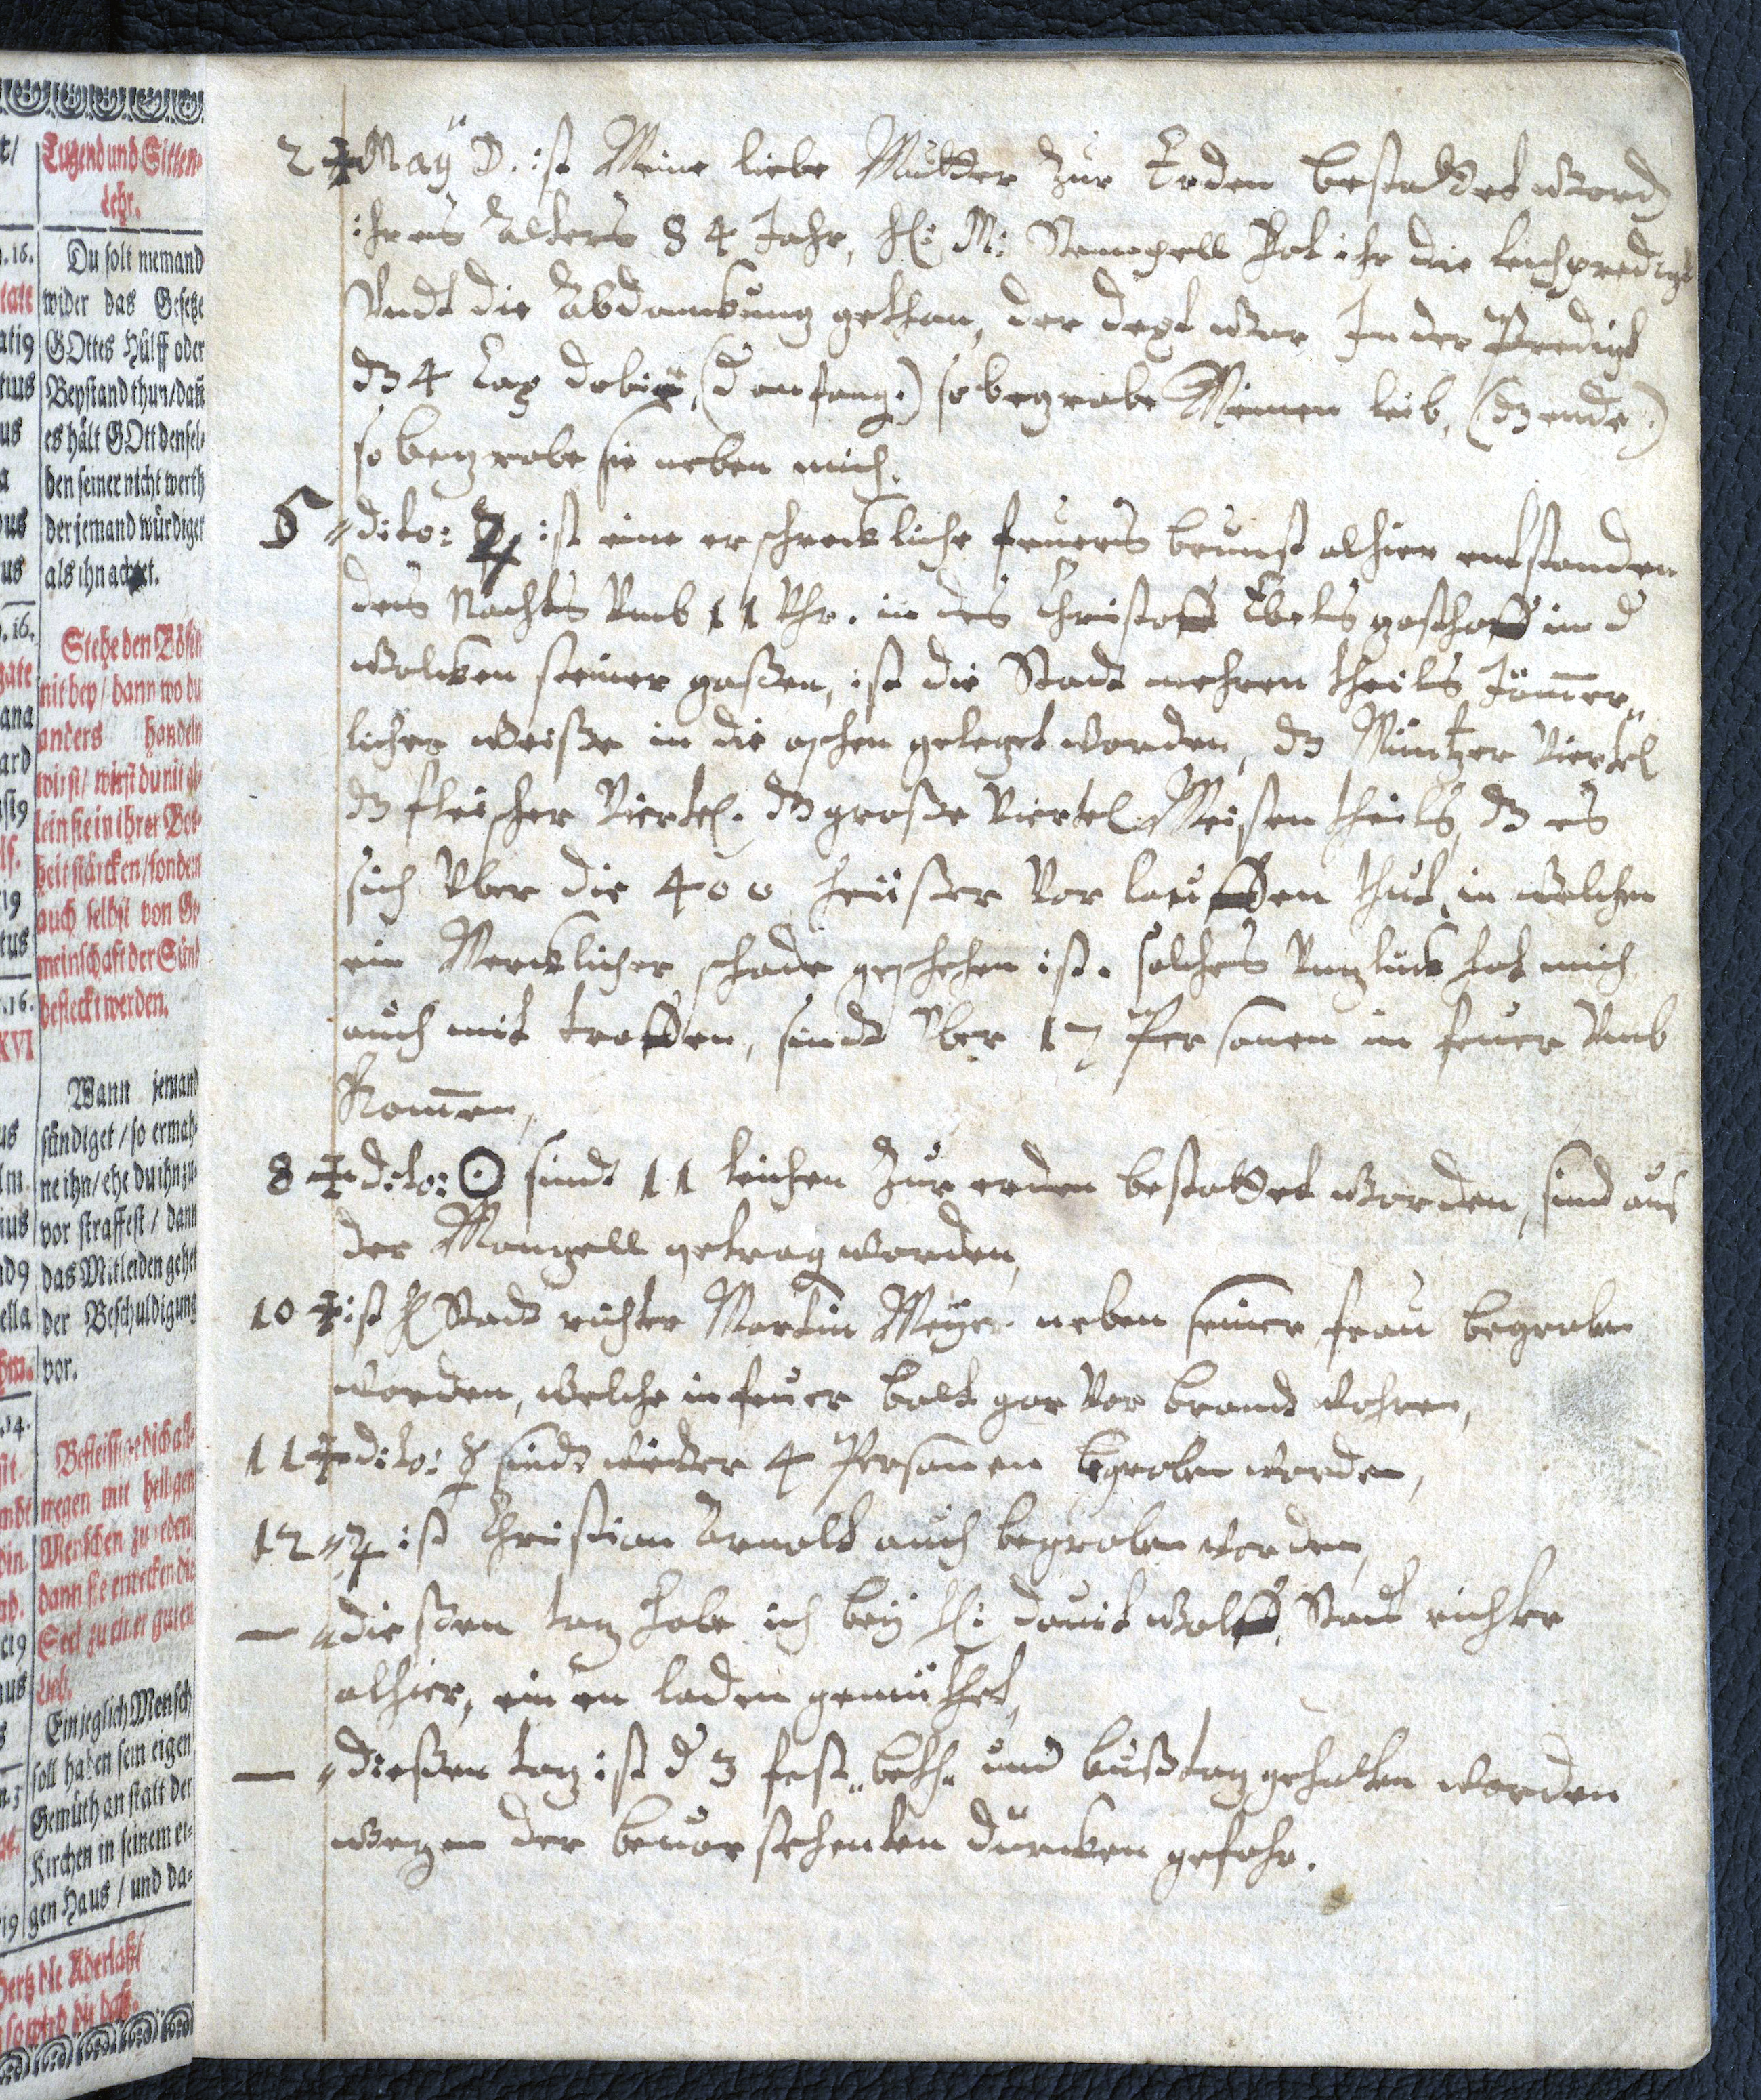 Tugend und Sitten-
Lehr.
Du solt niemand
wider das Gesetze
GOttes Hülff oder
Beystand thun/dañ
es hält GOtt densel-
ben seiner nicht werth
der jemand würdiger
als ihn achtet.
Stehe den Bösen
nit bey/dann wo du
anders handeln
wirst/wirst du nit al-
lein sie in ihrer Bos-
heit stärcken/sondern
auch selbst von Ge-
meinschaft der Sünd
befleckt werden.
Wann jemand
sündiget/so ermah-
ne ihn/ehe du ihn zu-
vor straffest/dann
das Mitleiden gehet
der Beschuldigung
vor.
Befleissige dich all-
wegen mit heiligen
Menschen zu reden/
dann sie erwecken die
Seel zu einer guten
Lieb.
Ein jeglich Mensch
soll haben sein eigen
Gemüth an statt der
Kirchen in seinem ei-
gen Haus/und da-
2 Maÿ ist Meine liebe Mutter Zur Erden bestattet word
ihres alters 84 Jahr, H: M: hat ihr die leichpredigt
Vndt die abdanckung gethan, der text war In der Predigt
dz 4 Cap Tobie, (d anfang.) so begrabe Meinen leib, (dz ende.)
so begrabe sie neben mich.
5 " dito: ♃ ist eine erschreckliche feuers brunst alhier entstanden
des Nachts Vmb 11 Vhr. in des Christoff Ebelts gasthoff in d
wolcken steiner gaßen, ist die Stadt mehren theils Jam̃er„
licher weiße in die aschen geleget worden, dz Müntzer Viertel
dz fleischer Viertel. dz große Viertel Meisten theils, dz es
sich Vber die 400 heüßer Vor lauffen thut, in welchen
ein Mercklicher schade geschehen ist. solches Vnglück hat mich
auch mit troffen, sindt Vber 17 Personen in feuer Vmb
Kom̃en,
8 dito: ☉ sindt 11 leichen Zur erden bestattet worden, sind aus
der getrag worden,
10 ist H Stadt richter Martin Meÿer neben seiner frau begraben
worden, welche in feuer balt gar Vor brandt wahren,
11 dito: ☿ sindt wieder 4 Personen begraben worden,
12 " ♃ ist Christian Arnolt auch begraben worden,
— " dießen tag habe ich beÿ H: dauit wolff, Stadt richter
alhier, einen laden gemüthet,
— " dießen tag ist d 3 fest„ beth„ und bußtag gehalten worden
wegen der beuor stehenten dürcken gefahr.